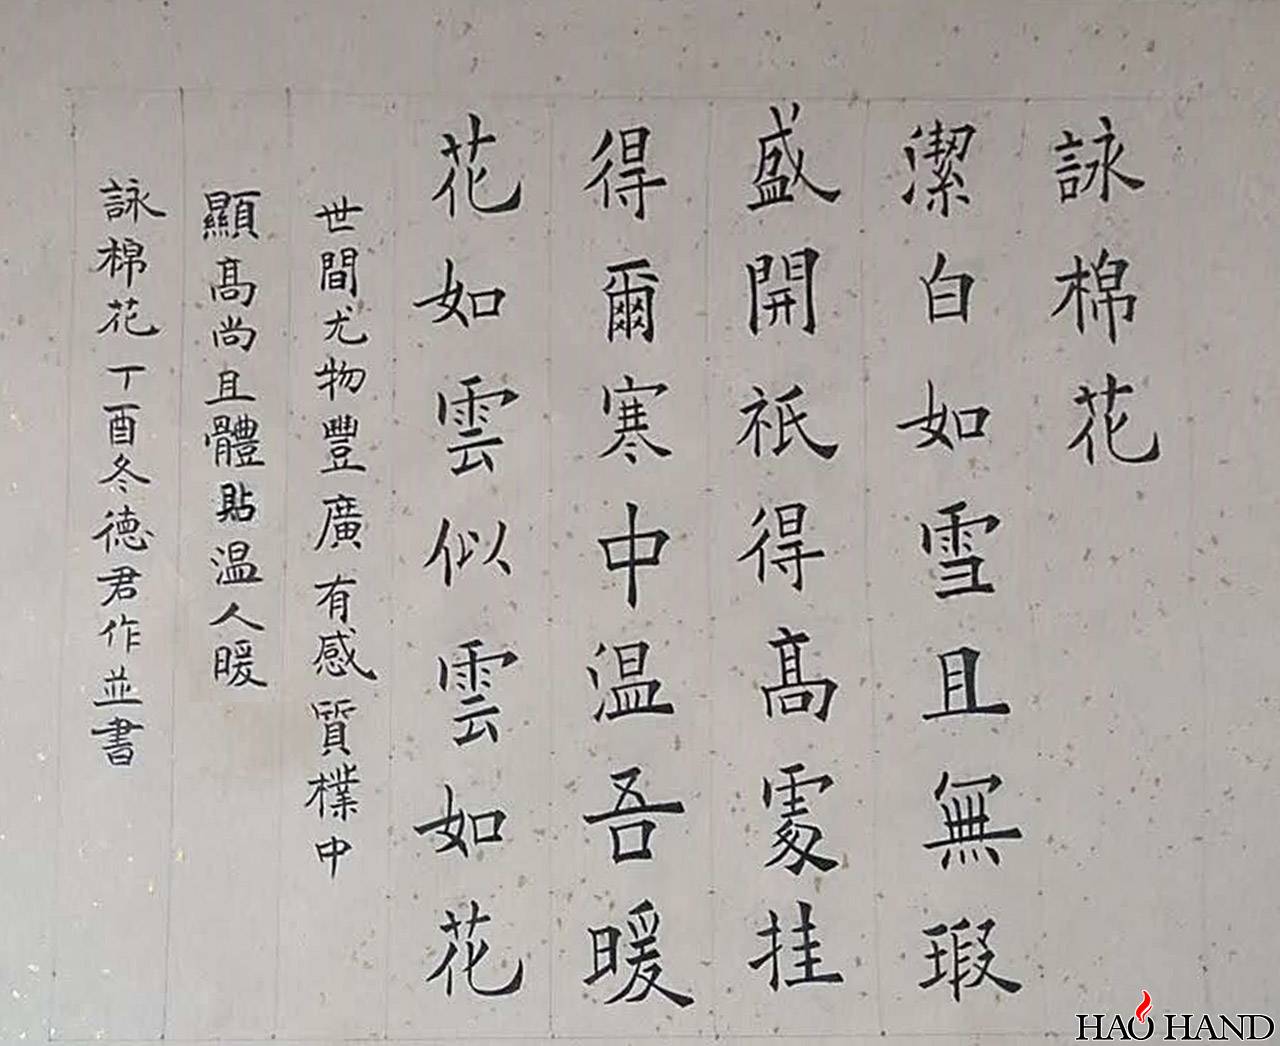 詠棉花
潔白如雪且無瑕
盛開祇得高處挂
得爾寒中温吾暖
花如雲似雲如花
世間尤物豐廣有感質樸中
顯高尚且體貼温人暖
詠棉花丁酉冬德君作並書
HAO HAND